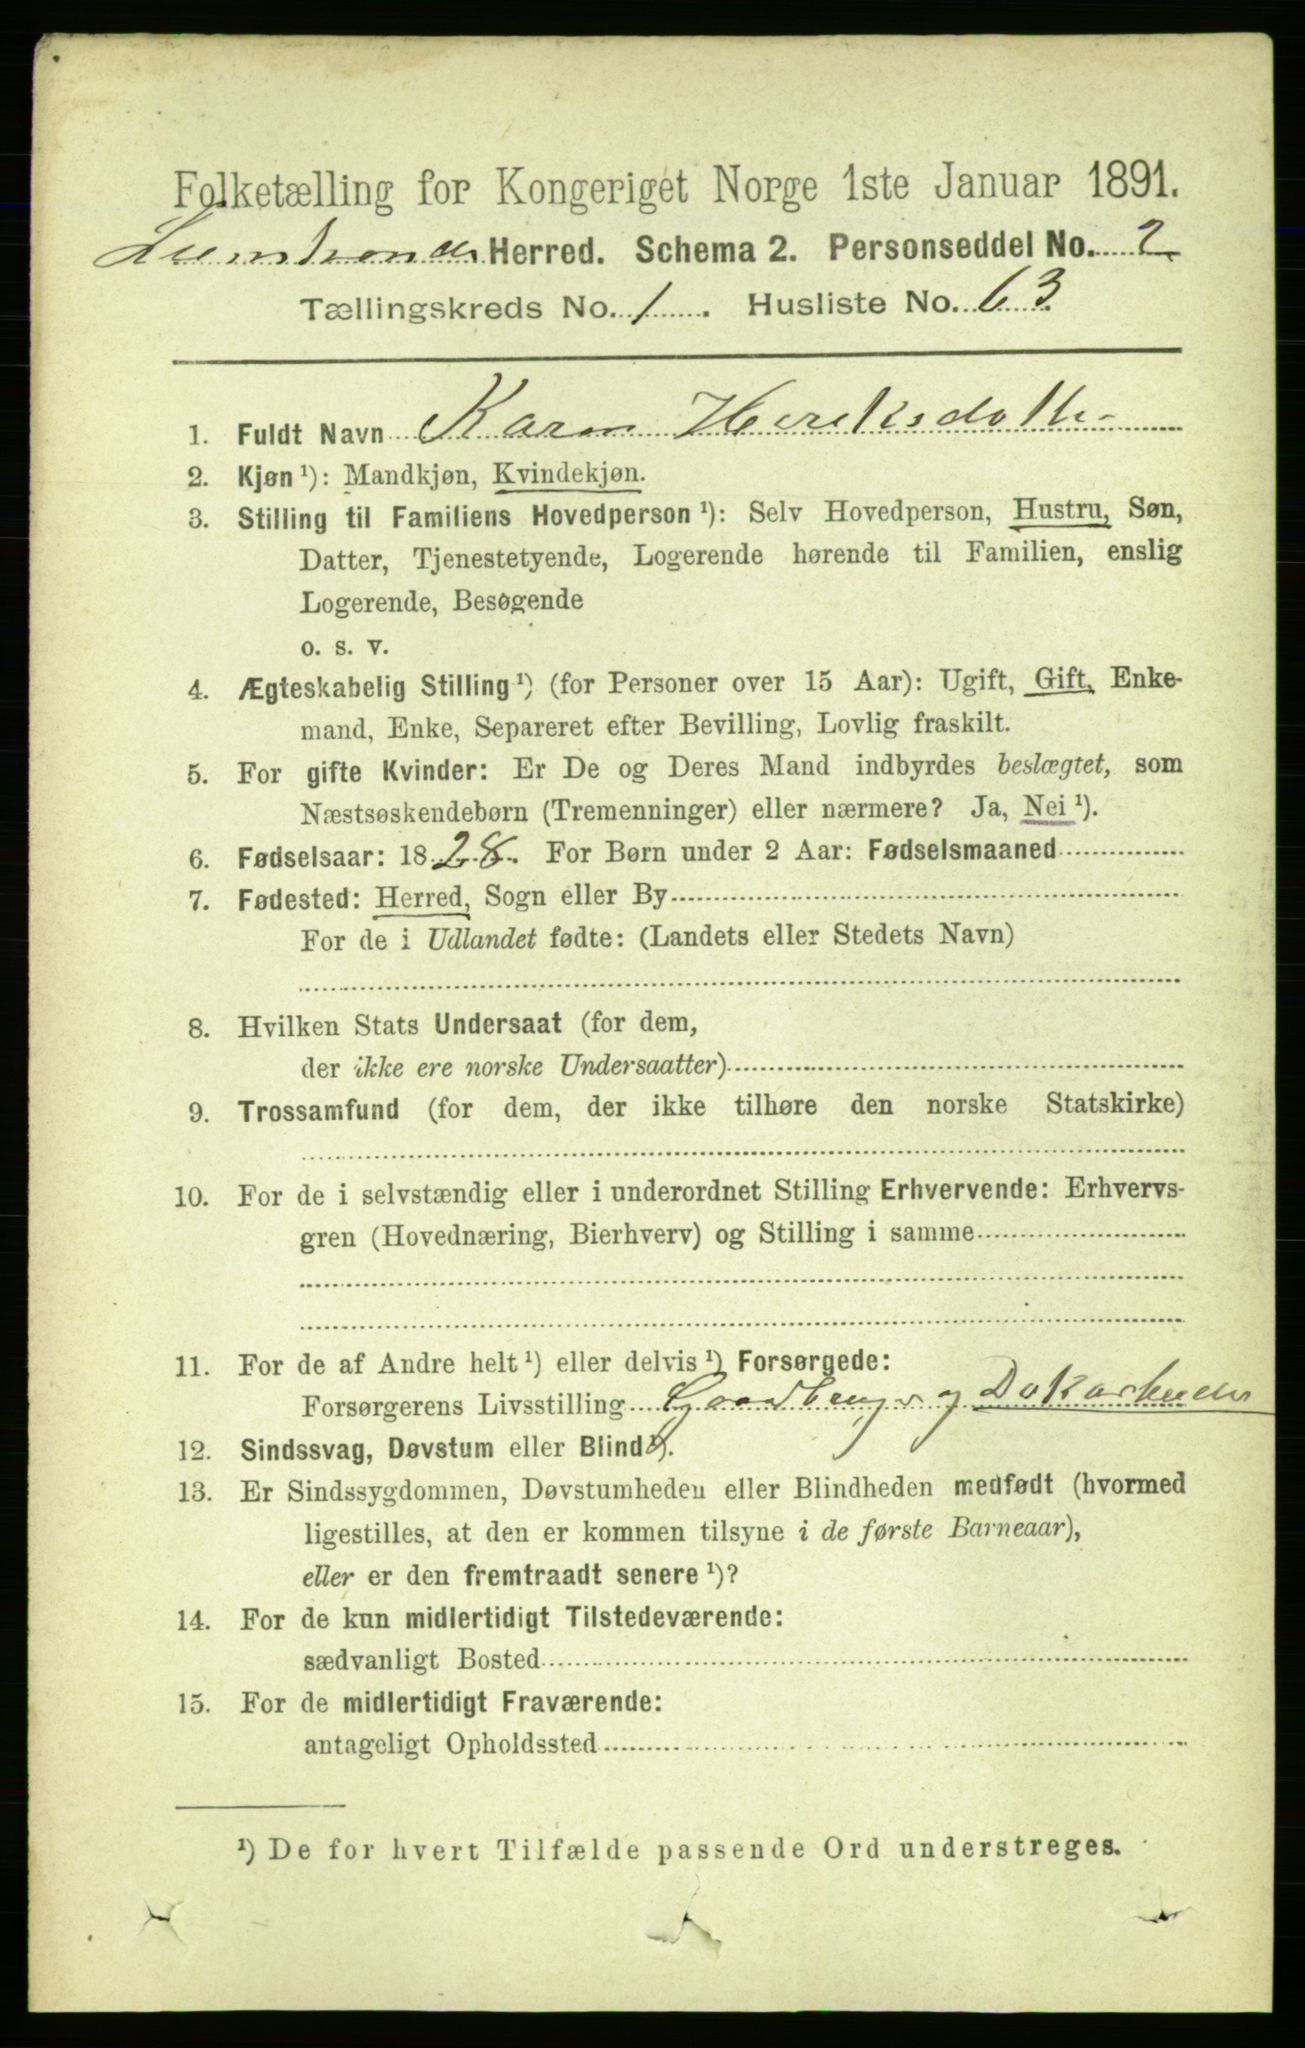 Folketælling for Kongeriget Norge 1ste Januar 1891.
Herred. Schema 2. Personseddel No. 2
Tællingskreds No. 1. Husliste No. 63
1. Fuldt Navn Karen
2. Kjøn ¹): Mandkjøn, Kvindekjøn.
3. Stilling til Familiens Hovedperson ¹): Selv Hovedperson, Hustru, Søn,
Datter, Tjenestetyende, Logerende hørende til Familien, enslig
Logerende, Besøgende
o. s. v.
4. Ægteskabelig Stilling ¹) (for Personer over 15 Aar): Ugift, Gift, Enke-
mand, Enke, Separeret efter Bevilling, Lovlig fraskilt.
5. For gifte Kvinder: Er De og Deres Mand indbyrdes beslægtet, som
Næstsøskendebørn (Tremenninger) eller nærmere? Ja, Nei ¹).
6. Fødselsaar: 1828. For Børn under 2 Aar: Fødselsmaaned
7. Fødested: Herred, Sogn eller By
For de i Udlandet fødte: (Landets eller Stedets Navn)
8. Hvilken Stats Undersaat (for dem,
der ikke ere norske Undersaatter)
9. Trossamfund (for dem, der ikke tilhøre den norske Statskirke)
10. For de i selvstændig eller i underordnet Stilling Erhvervende: Erhvervs-
gren (Hovednæring, Bierhverv) og Stilling i samme
11. For de af Andre helt ¹) eller delvis ¹) Forsørgede:
Forsørgerens Livsstilling
12. Sindssvag, Døvstum eller Blind ¹).
13. Er Sindssygdommen, Døvstumheden eller Blindheden medfødt (hvormed
ligestilles, at den er kommen tilsyne i de første Barneaar),
eller er den fremtraadt senere ¹)?
14. For de kun midlertidigt Tilstedeværende:
sædvanligt Bosted
15. For de midlertidigt Fraværende:
antageligt Opholdssted
¹) De for hvert Tilfælde passende Ord understreges.